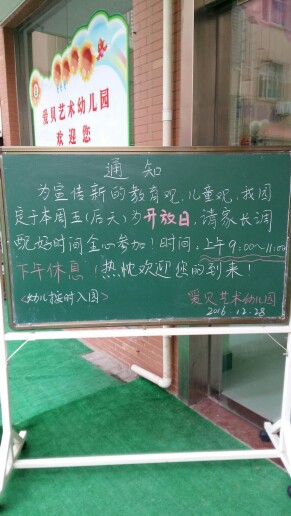 爱贝艺术幼儿园
欢迎您
通知
为宣传新的教育观,儿童观,我园
定于本周五(后天)为开放日,请家长调
配好时间全心参加!时间:上午9:00~11:00
下午休息!热忱欢迎您的到来!
<幼儿按时入园>
爱贝艺术幼儿园
2016.12.28